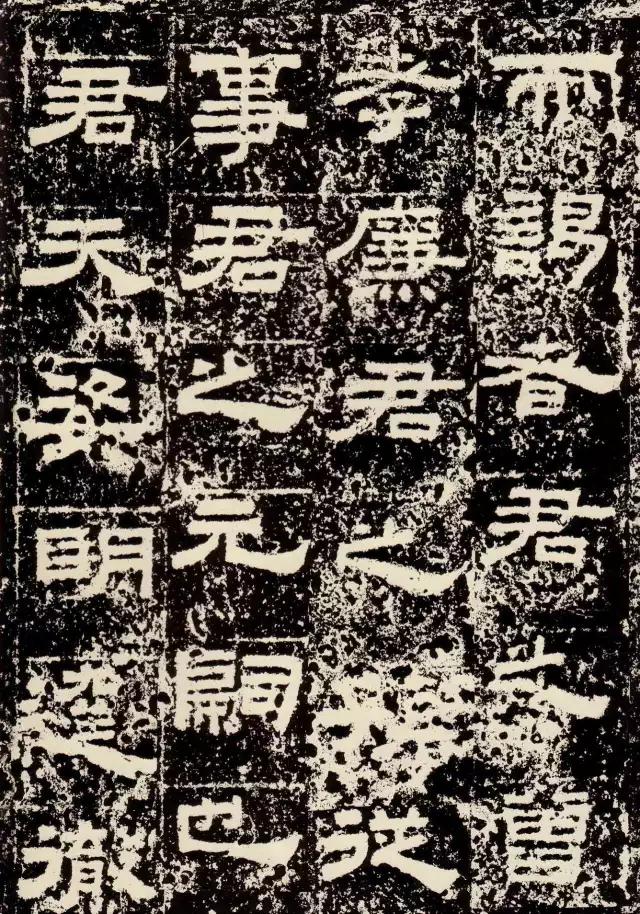 謁者君之曾
孝廉君之孫從
事君之元嗣也
君天姿明達徹